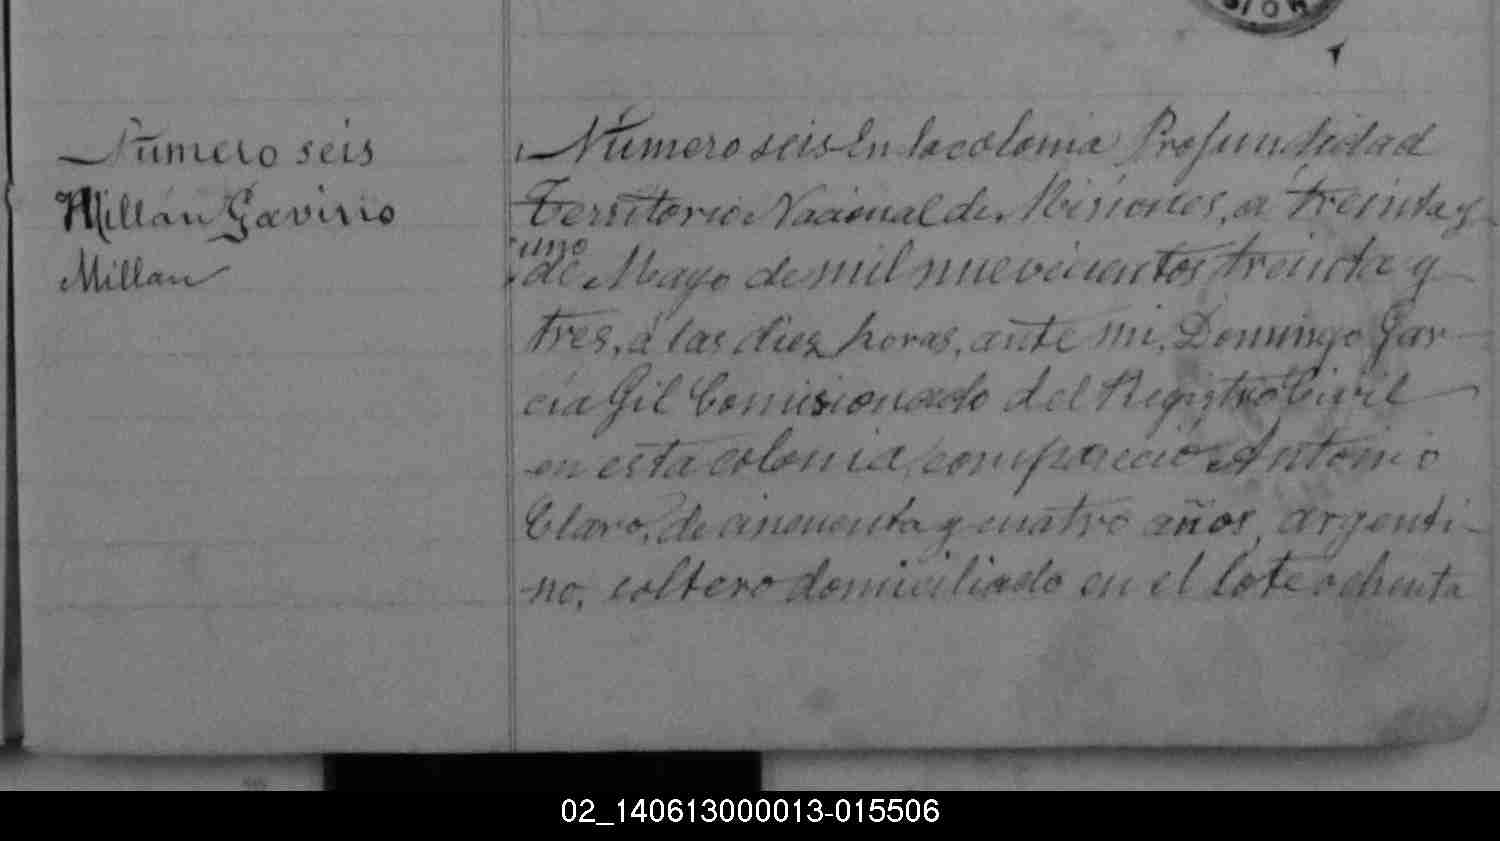 Número seis
Millán Gavirio
Millan
Número seis En la colonia Profundidad
Territorio Nacional de Misiones, a treinta y
uno
de Mayo de mil nuevecientos treinta y
tres, á las diez horas, ante mi, Domingo Gar-
cía Gil Comisionado del Registro Civil
en esta colonia, compareció Antonio
Claro, de cincuenta y cuatro años, argenti-
no, soltero domiciliado en el lote ochenta
02_140613000013-015506